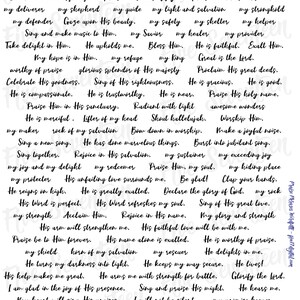 my deliverer my shepherd my guide my light and salvation my stronghold
my defender Gaze upon His beauty. my safety my shelter my helper
Sing and make music to Him. my Savior my healer my provider
Take delight in Him. He upholds me. Bless Him. He is faithful. Exalt Him.
My hope is in Him. my refuge my King Great is the Lord.
worthy of praise glorious splendor of His majesty Proclaim His great deeds.
Celebrate His goodness. Sing of His righteousness. He is gracious. He is good.
He is compassionate. He is trustworthy. He is near. Praise His holy name.
Praise Him in His sanctuary. Radiant with light awesome wonders
He is merciful. Lifter of my head Shout hallelujah. Worship Him.
my maker rock of my salvation Bow down in worship. Make a joyful noise.
Sing a new song. He has done marvelous things. Burst into jubilant song.
Sing together. Rejoice in His salvation. my sustainer my exceeding joy
my joy and my delight my redeemer Praise Him, my soul. my hiding place
my protector His unfailing love surrounds me. Be glad! Clap your hands.
He reigns on high. He is greatly exalted. Declare the glory of God. my rock
His Word is perfect. His Word refreshes my soul. Sing of His great love.
my strength Acclaim Him. Rejoice in His name. My glory and strength
His arm will strengthen me. His faithful love will be with me.
Praise be to Him forever. His name alone is exalted. He is worthy of praise.
my shield horn of my salvation my rescuer He delights in me.
He turns my darkness into light. He keeps my way secure. He lives!
His help makes me great. He arms me with strength for battle. Glorify the Lord.
I am glad in the joy of His presence. Sing and praise His might. He hears me.